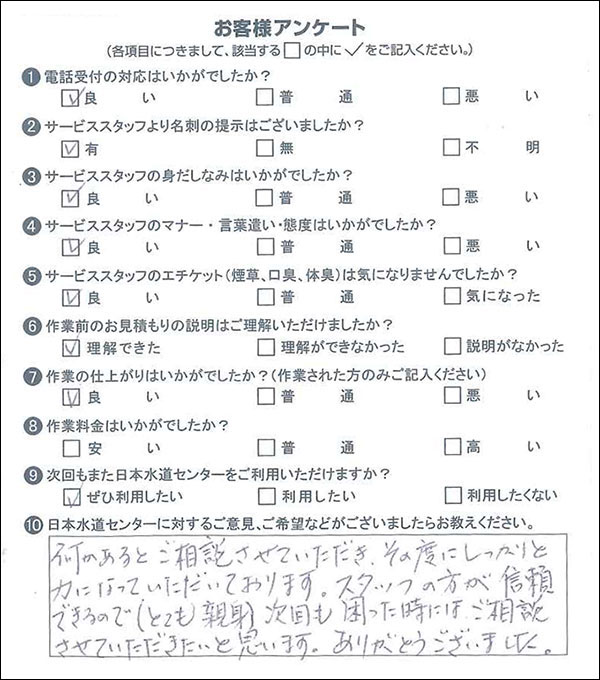 お客様アンケート
(各項目につきまして、該当する□の中に✓をご記入ください。)
❶電話受付の対応はいかがでしたか?
☑良い □普通 □悪い
❷サービススタッフより名刺の提示はございましたか?
☑有 □無 □不明
❸サービススタッフの身だしなみはいかがでしたか?
☑良い □普通 □悪い
❹サービススタッフのマナー・言葉遣い・態度はいかがでしたか?
☑良い □普通 □悪い
❺サービススタッフのエチケット(煙草、口臭、体臭)は気になりませんでしたか?
☑良い □普通 □気になった
❻作業前のお見積もりの説明はご理解いただけましたか?
☑理解できた □理解ができなかった □説明がなかった
❼作業の仕上がりはいかがでしたか?(作業された方のみご記入ください)
☑良い □普通 □悪い
❽作業料金はいかがでしたか?
□安い □普通 □高い
❾次回もまた日本水道センターをご利用いただけますか?
☑ぜひ利用したい □利用したい □利用したくない
❿日本水道センターに対するご意見、ご希望などがございましたらお教えください。
何かあるとご相談させていただき、その度にしっかりと
力になっていただいております。スタッフの方が信頼
できるので(とても親身)次回も困った時にはご相談
させていただきたいと思います。ありがとうございました。